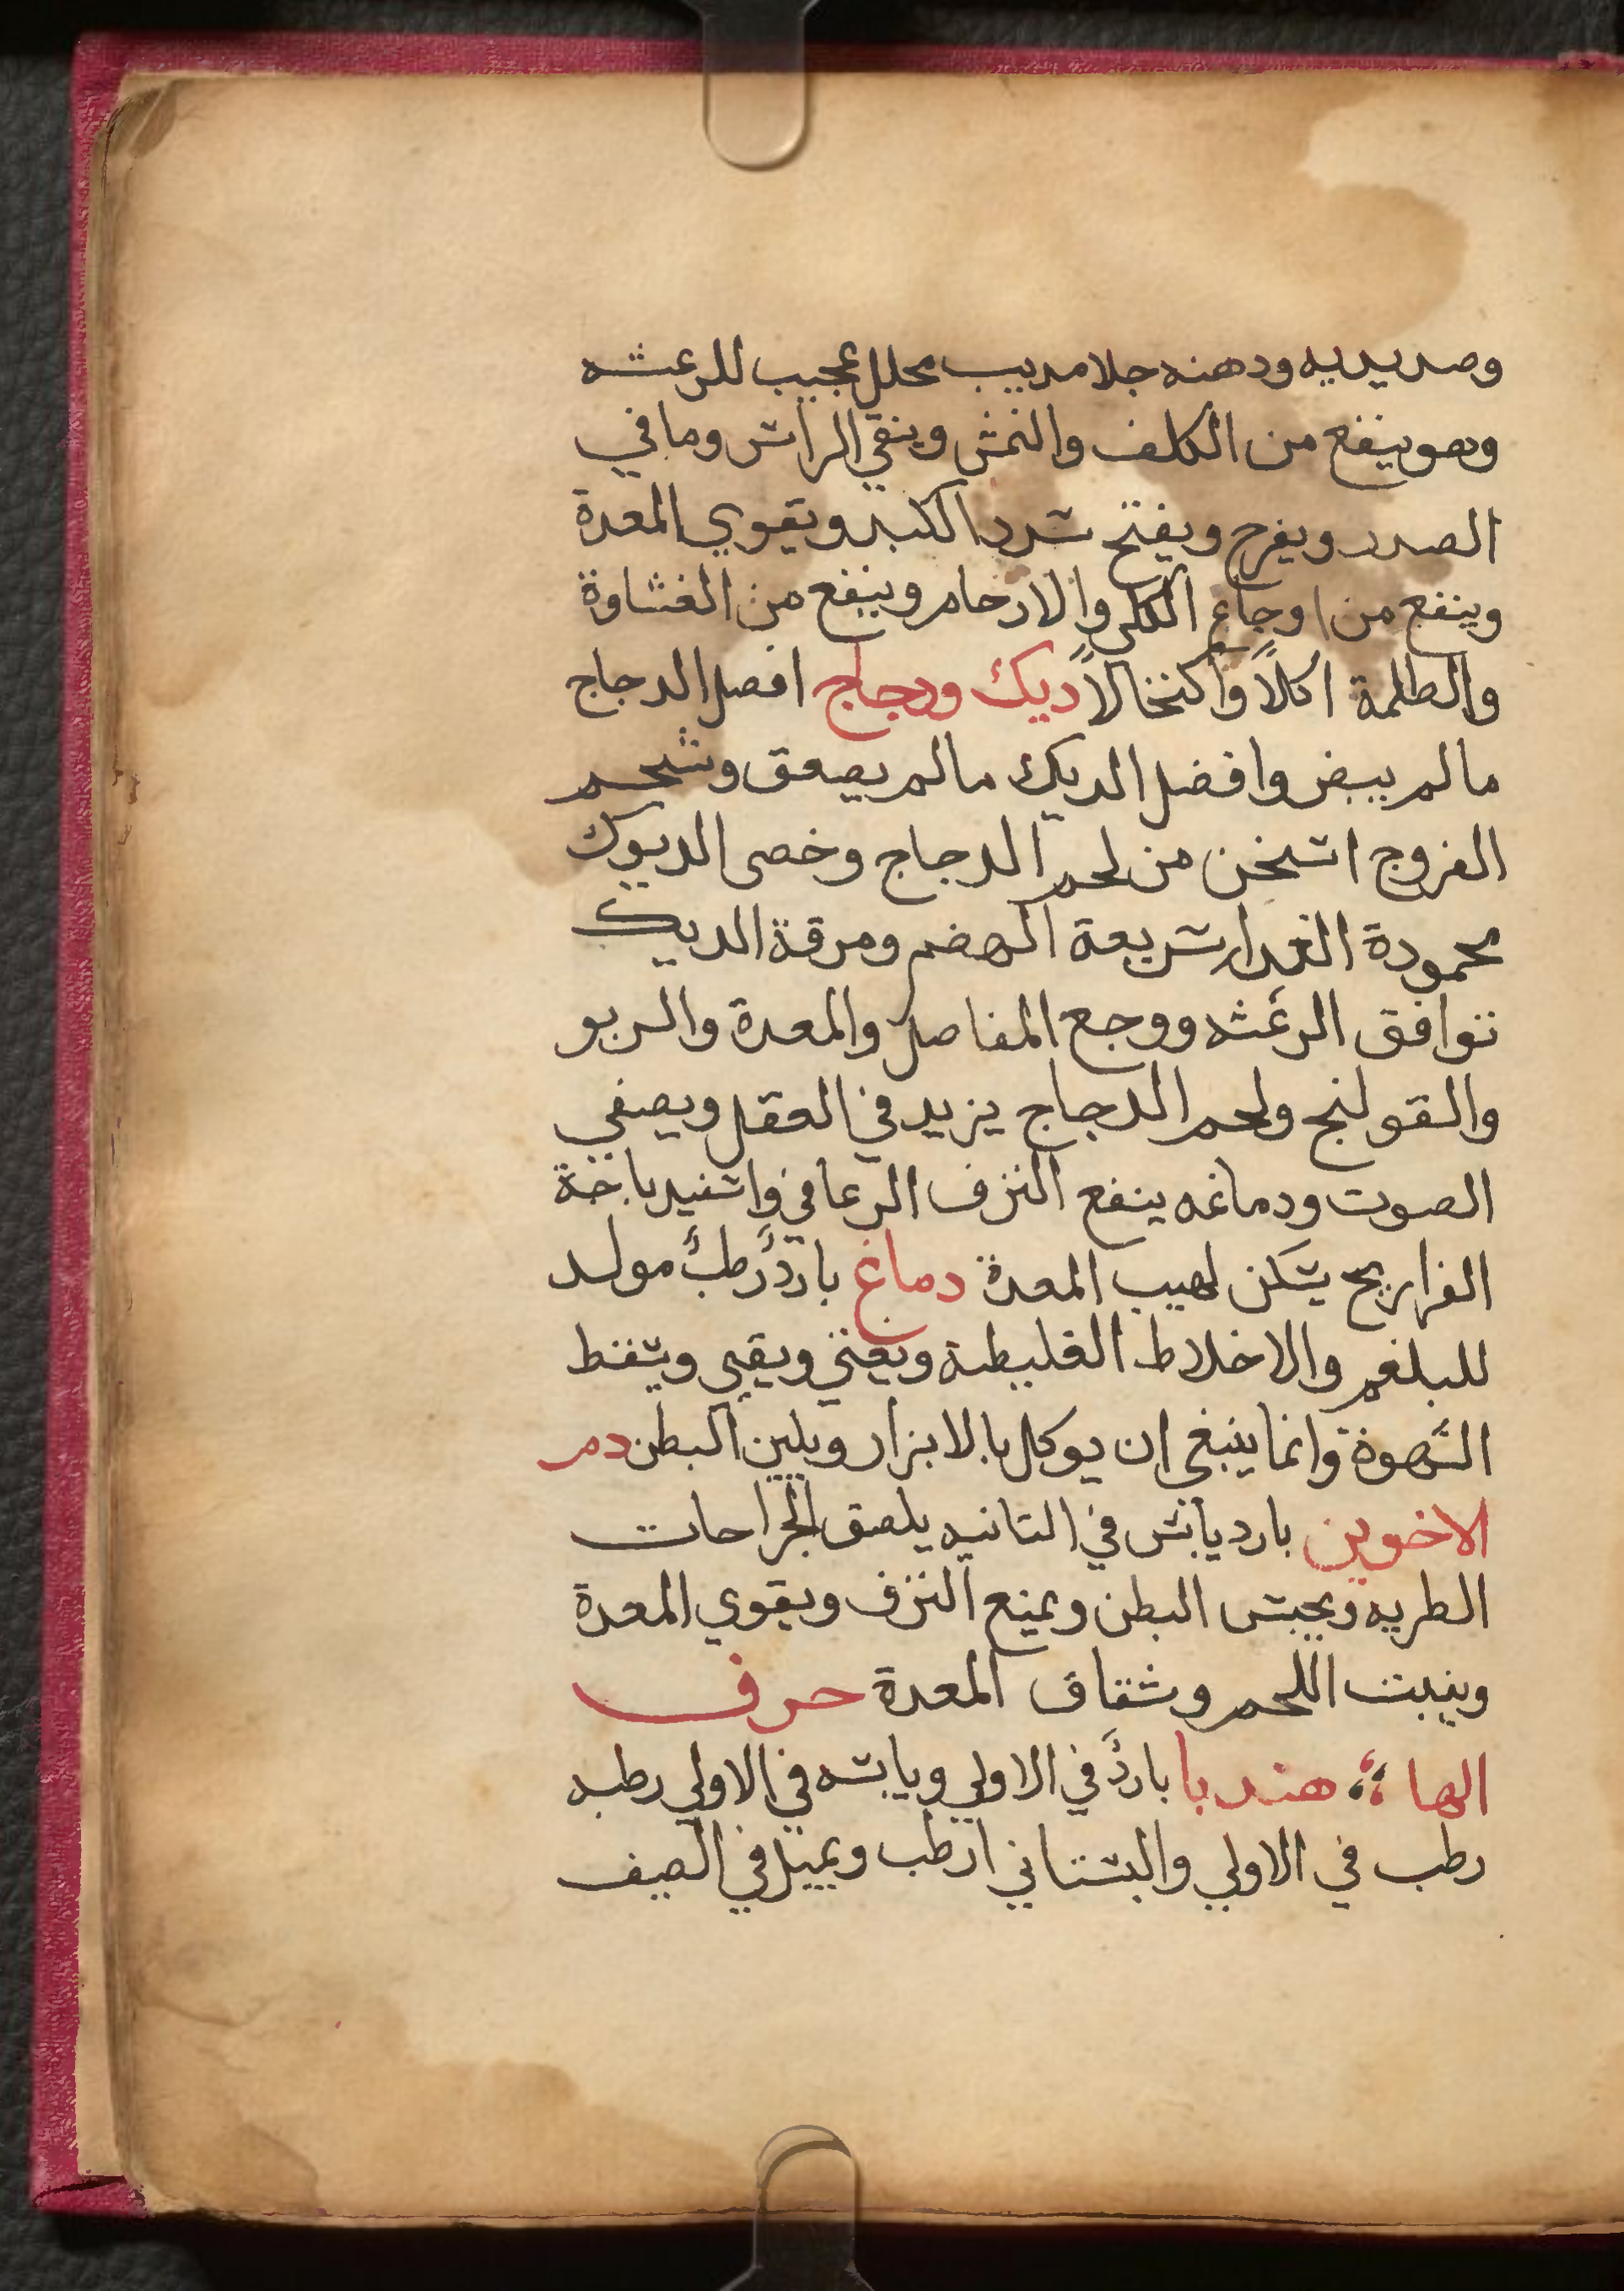 وصديديه ودهنه جلا مديب محلل عجيب للرعشه
وهو ينفع من الكلف والنمش وينقي الراس وما في
الصدر ويفرح ويفتح سدد الكبد ويقوي المعدة
وينفع من اوجاع الكلي والارحام وينفع من الغشاوة
والظلمة اكلاً واكتحالاً ديك ودجاج افضل الدجاج
ما لم يبيض وافضل الديك ما لم يصعق وشحم
الفروج اسخن من لحم الدجاج وخصى الديوك
محمودة الغدا سريعة الهضم ومرقة الديك
توافق الرعشه ووجع المفاصل والمعدة والربو
والقولنج ولحم الدجاج يزيد في العقل ويصفي
الصوت ودماغه ينفع النزف الرعافي واسفيدباجة
الفراريج يسكن لهيب المعدة دماغ باردٌ رطبٌ مولد
للبلغم والاخلاط الغليظة ويغثي ويقيي ويسقط
الشهوة وانما ينبغي ان يوكل بالابزار ويلين البطن دم
الاخوين بارد يابس في الثانيه يلصق الجراحات
الطريه ويحبس البطن ويمنع النزف ويقوي المعدة
وينبت اللحم وشقاق المعدة حرف
الهاء هندبا باردٌ في الاولي ويابسه في الاولي رطبه
رطب في الاولي والبستاني ارطب ويميل في الصيف